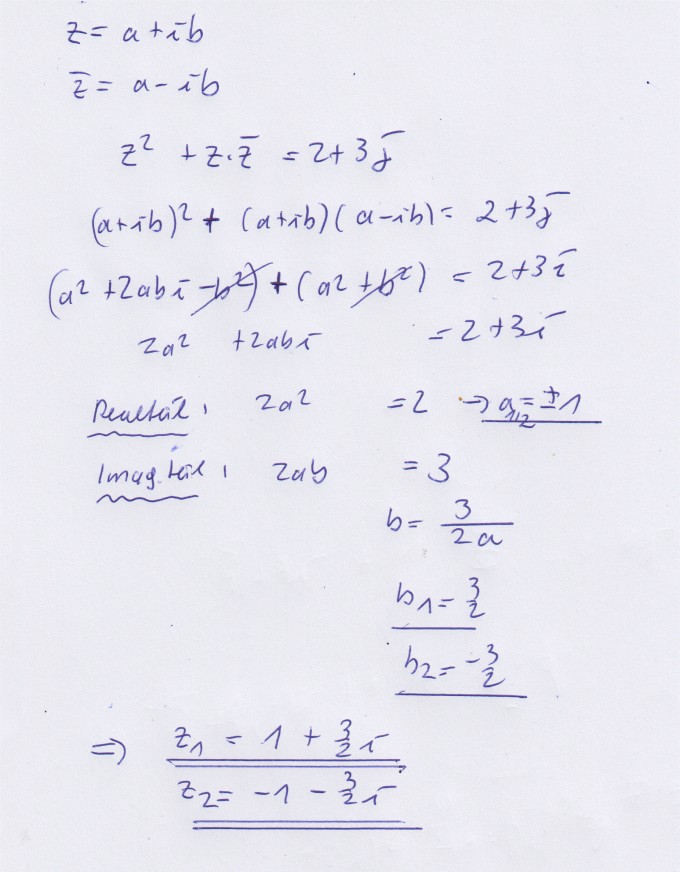 z = a + ib
z̅ = a - ib
z² + z·z̅ = 2 + 3j
(a+ib)² + (a+ib)(a-ib) = 2 + 3j
(a² + 2abi - b²) + (a² + b²) = 2 + 3i
2a² + 2abi = 2 + 3i
Realteil: 2a² = 2 → a₁,₂ = ±1
Imag.teil: 2ab = 3
b = 3/2a
b₁ = 3/2
b₂ = -3/2
⇒ z₁ = 1 + 3/2 i
z₂ = -1 - 3/2 i